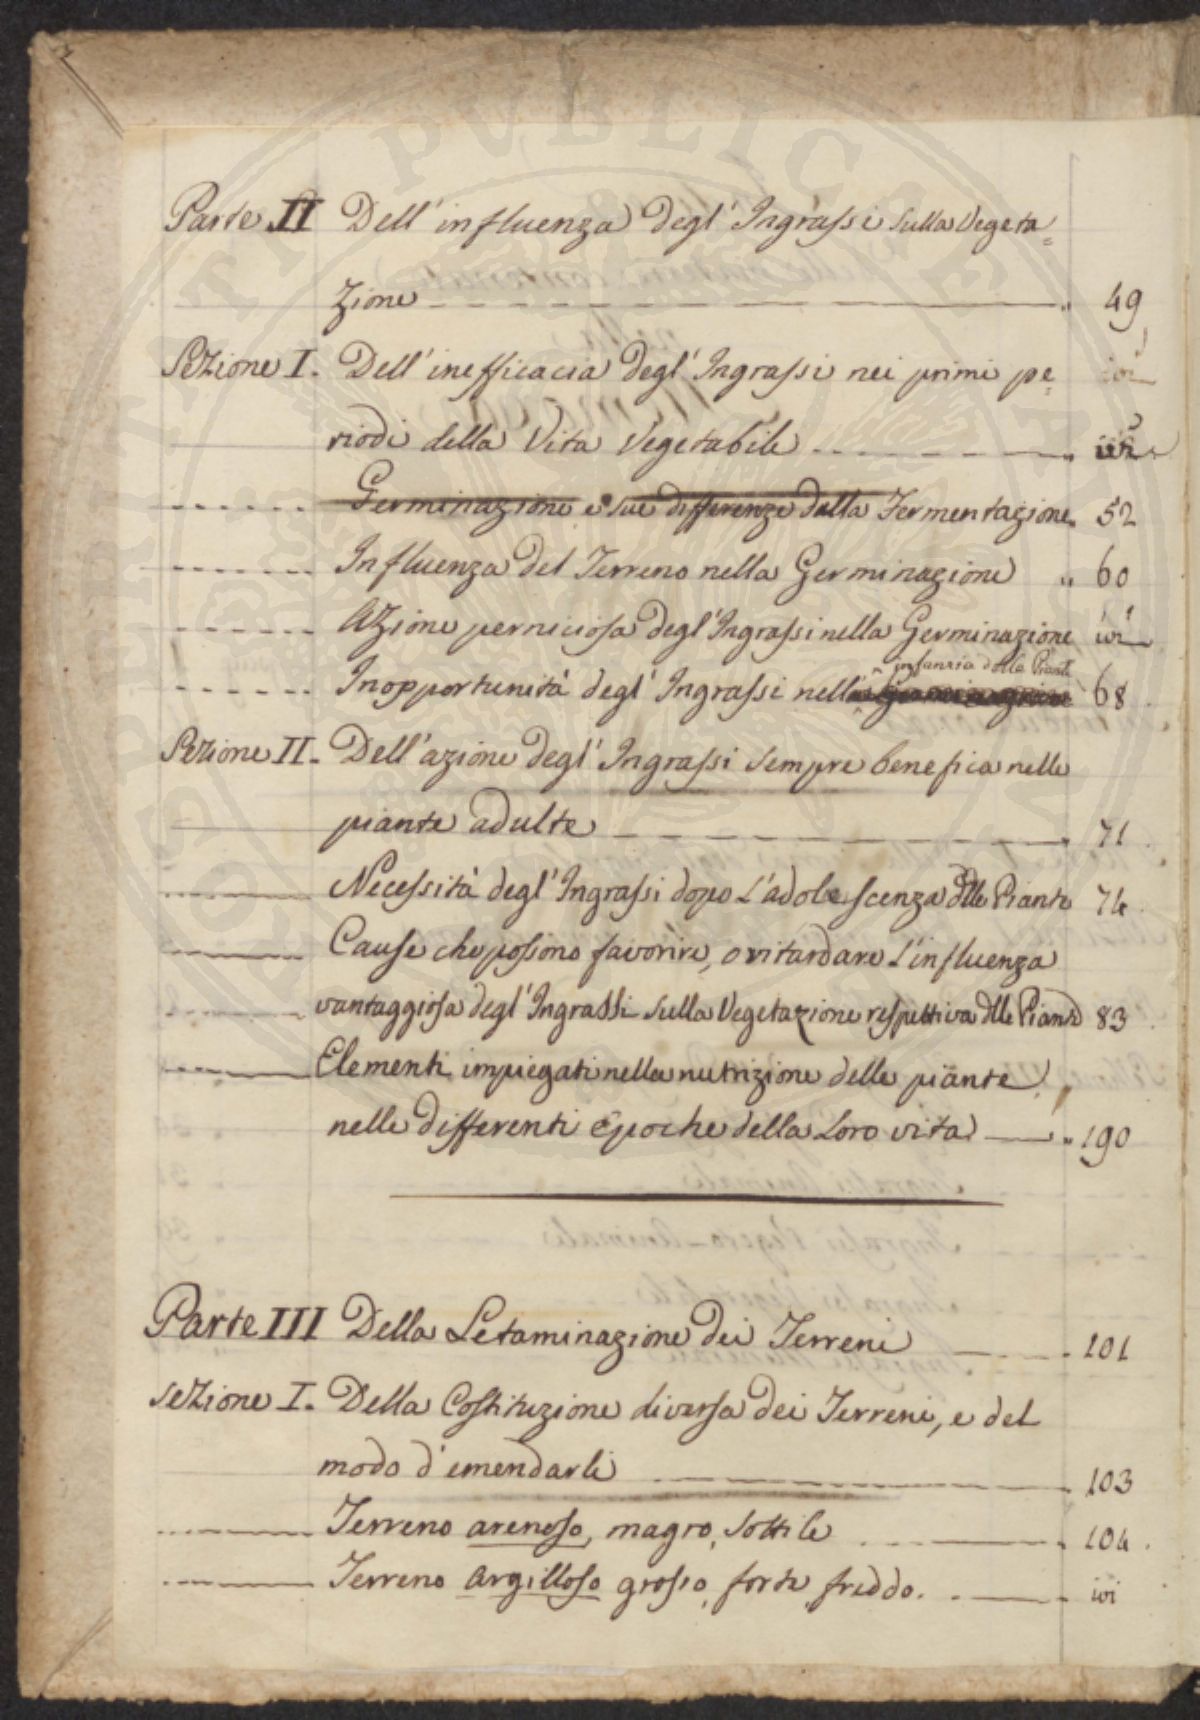 Parte II Dell' influenza degl' Ingrassi sulla Vegeta=
zione 49
Sezione I. Dell' inefficacia degl' Ingrassi nei primi pe= ivi
riodi della Vita Vegetabile ivi
Germinazione e sue differenze dalla Fermentazione 52
Influenza del Terreno nella Germinazione " 60
Azione perniciosa degl' Ingrassi nella Germinazione ivi
infanzia delle Piante
Inopportunità degl' Ingrassi nella Germinazione 68
Sezione II. Dell' azione degl' Ingrassi sempre benefica nelle
piante adulte 71
Necessità degl' Ingrassi dopo L'adolescenza dlle Piante 74
Cause che possono favorire, o ritardare L'influenza
vantaggiosa degl' Ingrassi sulla Vegetazione respettiva dlle Piante 83
Elementi impiegati nella nutrizione delle piante
nelle differenti Epoche della Loro vita " 190
Parte III Della Letaminazione dei Terreni 101
Sezione I. Della Costituzione diversa dei Terreni, e del
modo d'emendarli 103
Terreno arenoso, magro, sottile 104
Terreno argilloso grosso, forte, freddo. ivi